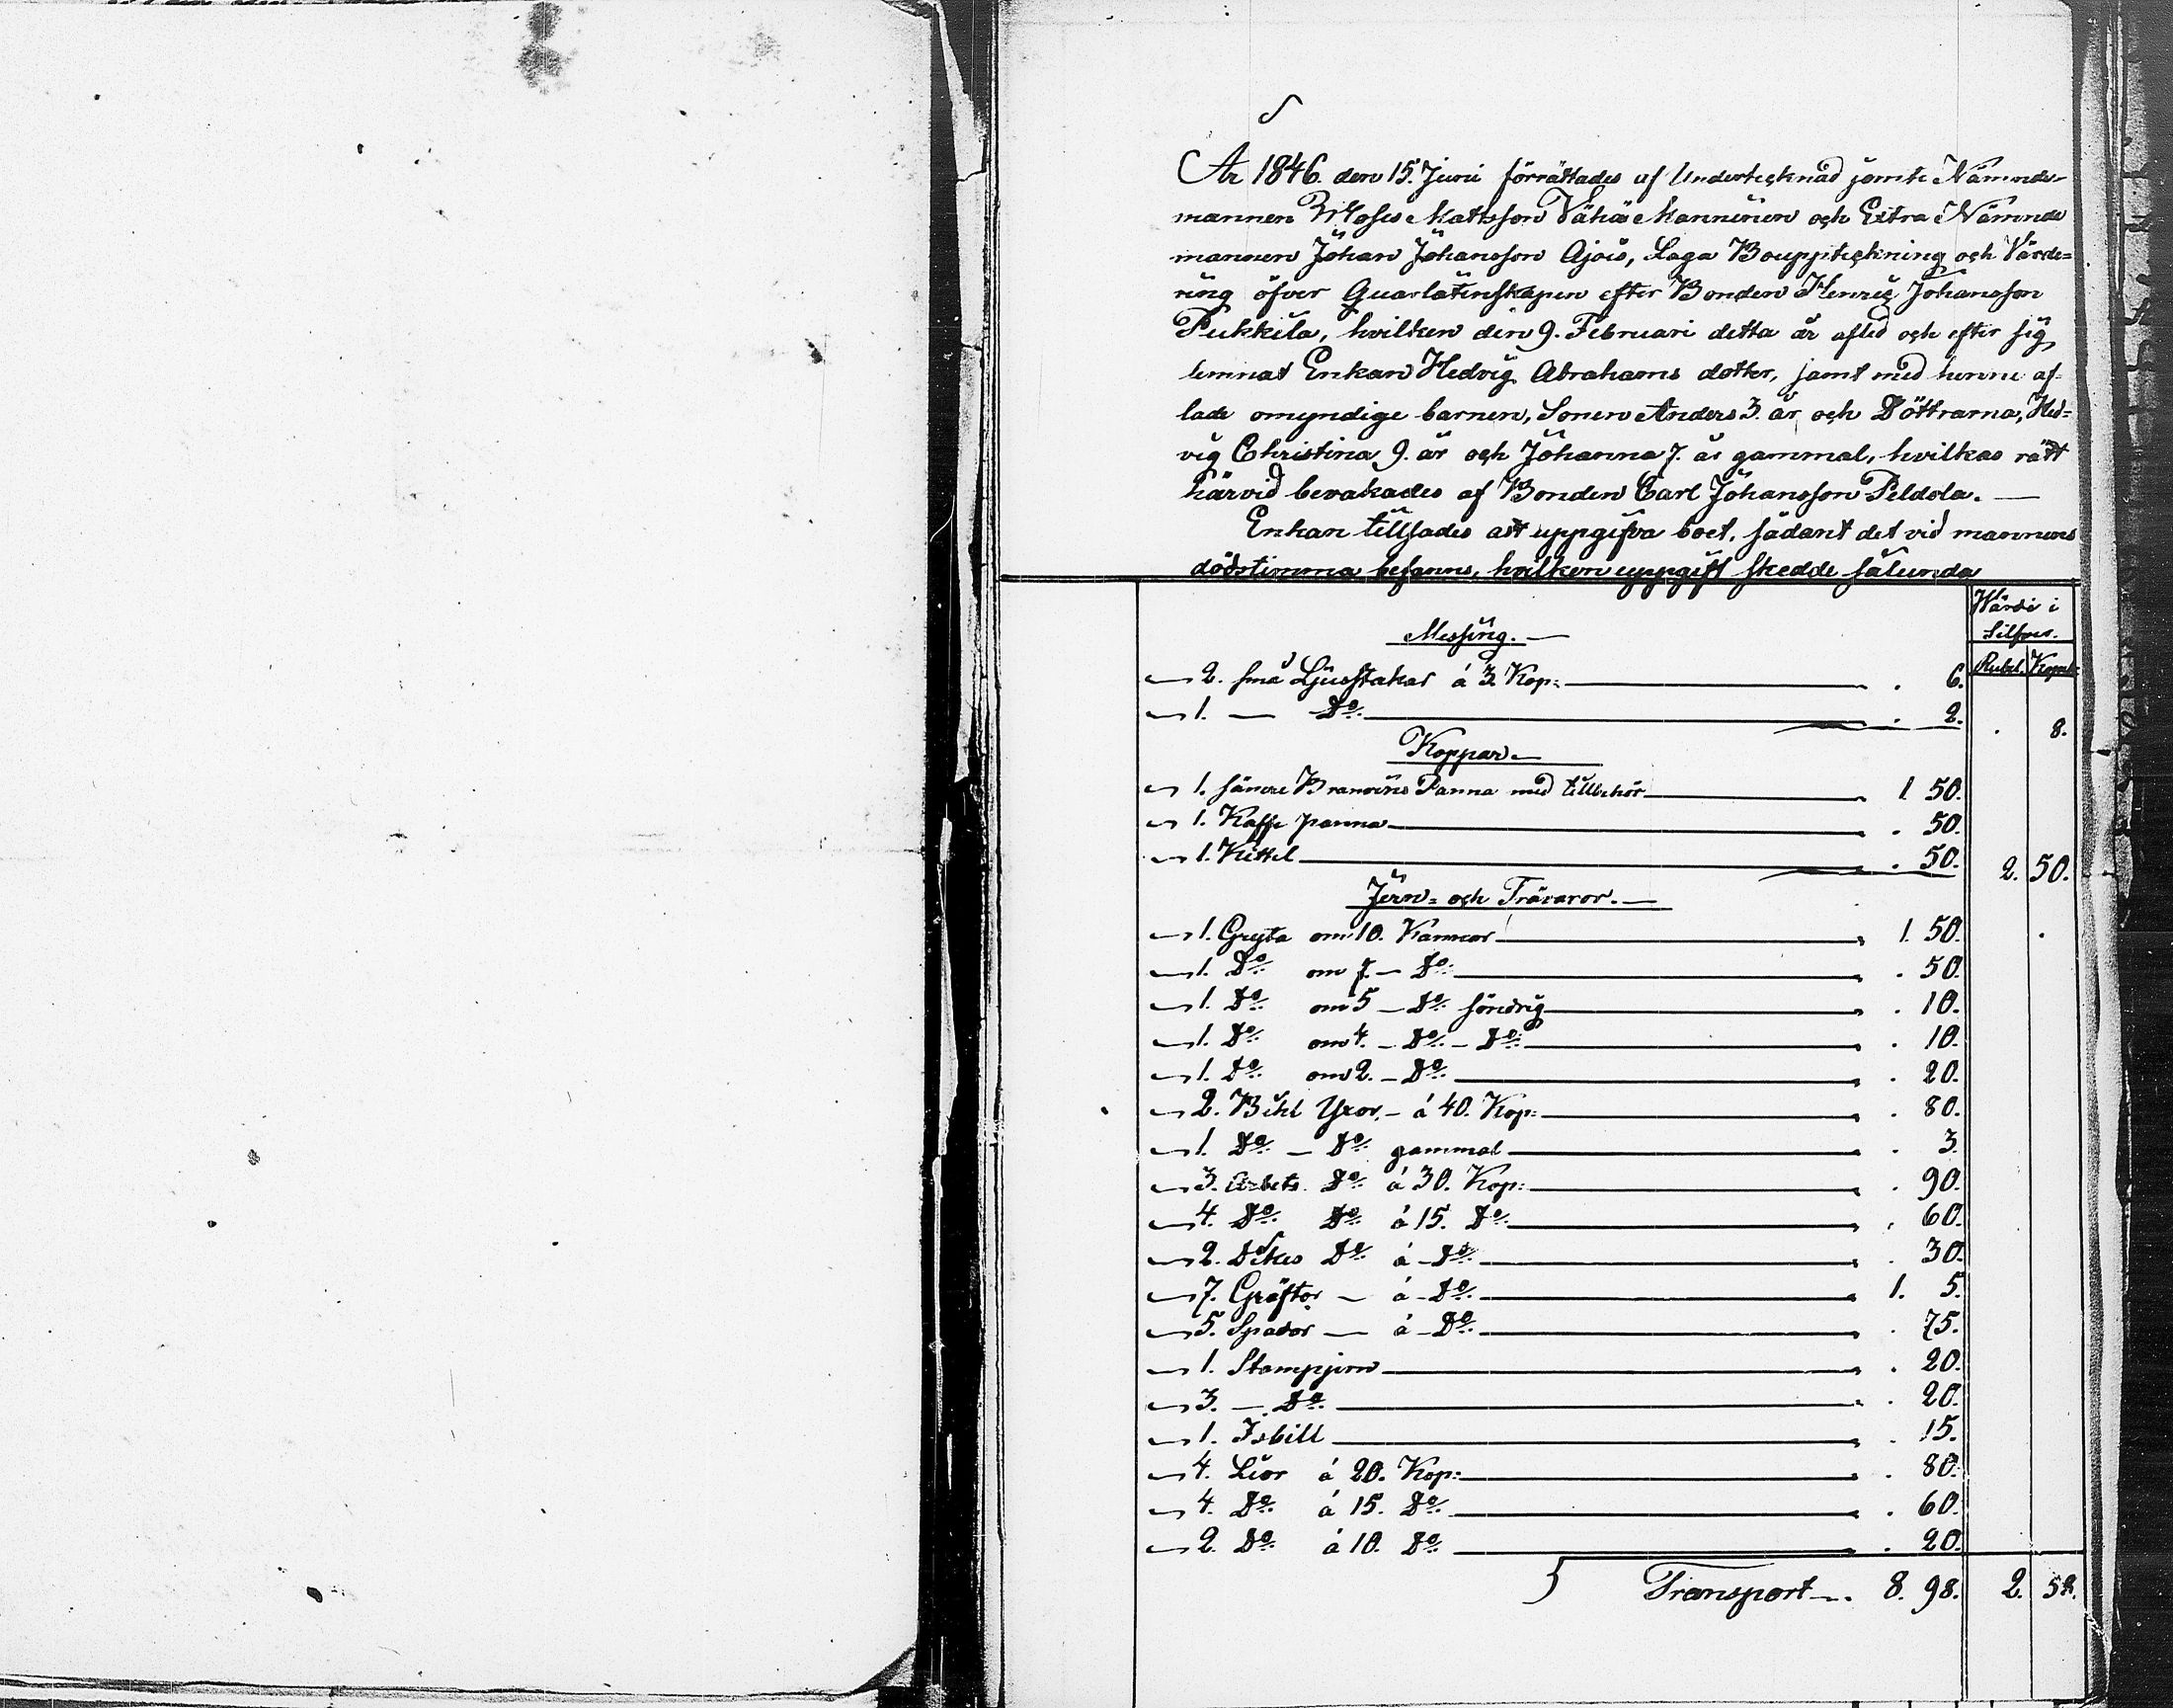 År 1846. den 15. Juni förrättades af Undertecknad jemte Nämnde-
mannen Moses Mattsson Vähä Manninen och Extra Nämnde
mannen Johan Johansson Ajois, Laga Bouppteckning och Värde=
ring öfver Quarlåtenskapen efter Bonden Henric Johansson
Pukkila, hvilken den 9. Februari detta år afled och efter sig
lemnat Enkan Hedvig Abrahams dotter, samt med henne af-
lade omyndige barnen, Sonen Anders 3. år och Döttrarna, Hed=
vig Christina 9. år och Johanna 7. år gammal, hvilkas rätt
härvid bevakades af Bonden Carl Johansson Peldola. —
Enkan tillsades att uppgifva boet, sådant det vid mannens
dödstimma befanns, hvilken uppgift skedde sålunda
Värde i
Silfver.
Rubel. Kopek:
Messing. —
2. små Ljusstakar á 3. Kop: . 6.
1. — Do . 2. . 8.
Koppar —
1. sämre Branvins Panna med tillbehör 1. 50.
1. Kaffe panna . 50.
1. Kittel . 50. 2. 50.
Jern= och Trävaror. —
1. Gryta om 10. Kannor 1. 50.
1. Do om 7. — Do . 50.
1. Do om 5 — Do söndrig . 10.
1. Do om 4. — Do — Do . 10.
1. Do om 2. — Do . 20.
2. Bihl Yxor, — á 40. Kop: . 80.
1. Do — Do gammal . 3.
3. Arbets Do á 30. Kop: . 90.
4. Do Do á 15. Do . 60.
2. Dikes Do á — Do . 30.
7. Gräftor — á — Do 1. 5.
5. Spador — á — Do . 75.
1. Stampjern . 20.
3. — Do . 20.
1. Isbill . 15.
4. Liar á 20. Kop: . 80.
4. Do á 15. Do . 60.
2. Do á 10. Do . 20.
Transport —. 8. 98. 2. 58.